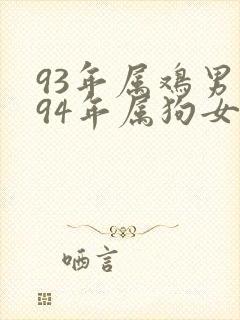 93年属鸡男
94年属狗女
哂言